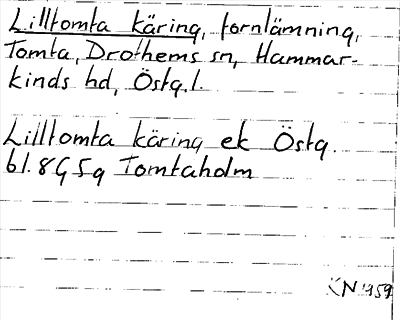 Lilltomta käring, fornlämning,
Tomta, Drothems sn, Hammar-
kinds hd, Östg.l.
Lilltomta käring ek Östg.
bl. 8G5g Tomtaholm
KN 1959